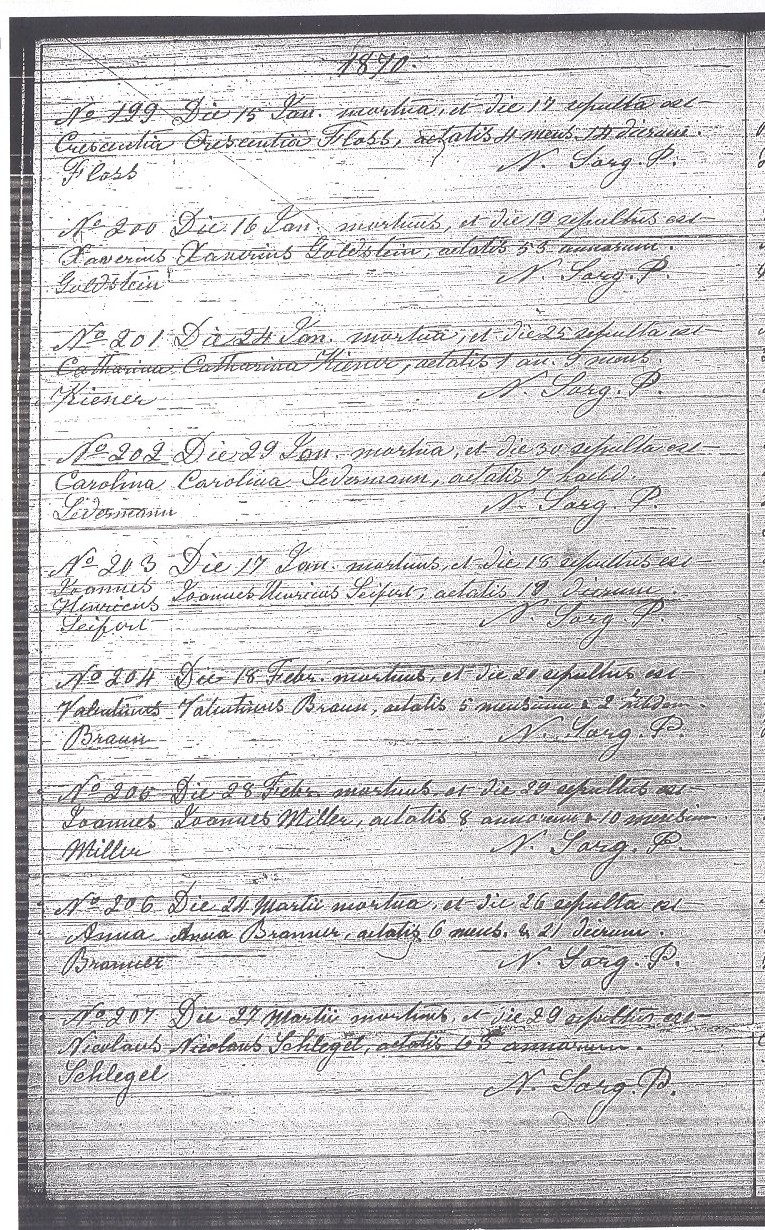 1870.
No 199 Die 15 Jan. mortua, et die 17 sepulta est
Crescentia Crescentia Floss, aetatis 4 mens. 14 dierum.
Floss N. Sorg. P.
No 200 Die 16 Jan. mortuus, et die 19 sepultus est
Xaverius Xaverius Goldstein, aetatis 53 annorum.
Goldstein N. Sorg. P.
No 201 Die 24 Jan. mortua, et die 25 sepulta est
Catharina Catharina Kiener, aetatis 1 an. 9 mens.
Kiener N. Sorg. P.
No 202 Die 29 Jan. mortua, et die 30 sepulta est
Carolina Carolina Lidermann, aetatis 7
Lidermann N. Sorg. P.
No 203 Die 17 Jan. mortuus, et die 18 sepultus est
Joannes
Henricus Joannes Henricus Seifert, aetatis 19 dierum.
Seifert N. Sorg. P.
No 204 Die 18 Febr. mortuus, et die 20 sepultus est
Valentinus Valentinus Braun, aetatis 5 mensium & 2
Braun N. Sorg. P.
No 205 Die 28 Febr. mortuus, et die 29 sepultus est
Joannes Joannes Miller, aetatis 8 annorum & 10 mensium
Miller N. Sorg. P.
No 206 Die 24 Martii mortua, et die 26 sepulta est
Anna Anna Branner, aetatis 6 mens. & 21 dierum.
Branner N. Sorg. P.
No 207 Die 27 Martii mortuus, et die 29 sepultus est
Nicolaus Nicolaus Schlegel, aetatis 63 annorum.
Schlegel N. Sorg. P.